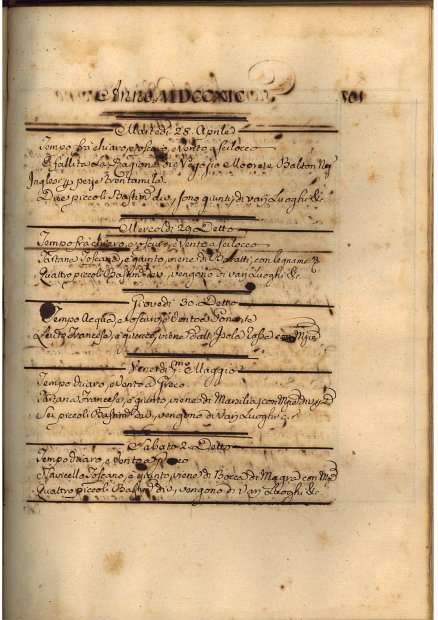 Anno MDCCXIC
501
Martedì 28 Aprile
Tempo frà chiaro, e oscuro, e vento a scilocco
È fallita la Ragione in Negozio Moore e Balton
Inglesi per pezze trentamila
Due piccoli Bastim.ti sono giunti, di varij Luoghi &c.
Mercoldì 29 Detto
Tempo frà chiaro, e oscuro, e vento a scilocco
Tartana Toscana, è giunto, viene di Baratti, con legname
Quattro piccoli Bastim.ti vengono di varij Luoghi &c.
Giovedì 30 Detto
Tempo e vento a Ponente
Leuto Francese, è giunto, viene dall'Isola Rossa con
Venerdì p.mo Maggio
Tempo chiaro, e vento a Greco
Tartana Francese, è giunto, viene di Marsilia, con
Sei piccoli Bastim.ti vengono di varij Luoghi &c.
Sabato 2 Detto
Tempo chiaro, e vento a
Navicello Toscano, è giunto, viene di Bocca di Magra con
Quattro piccoli Bastim.ti vengono di varij Luoghi &c.